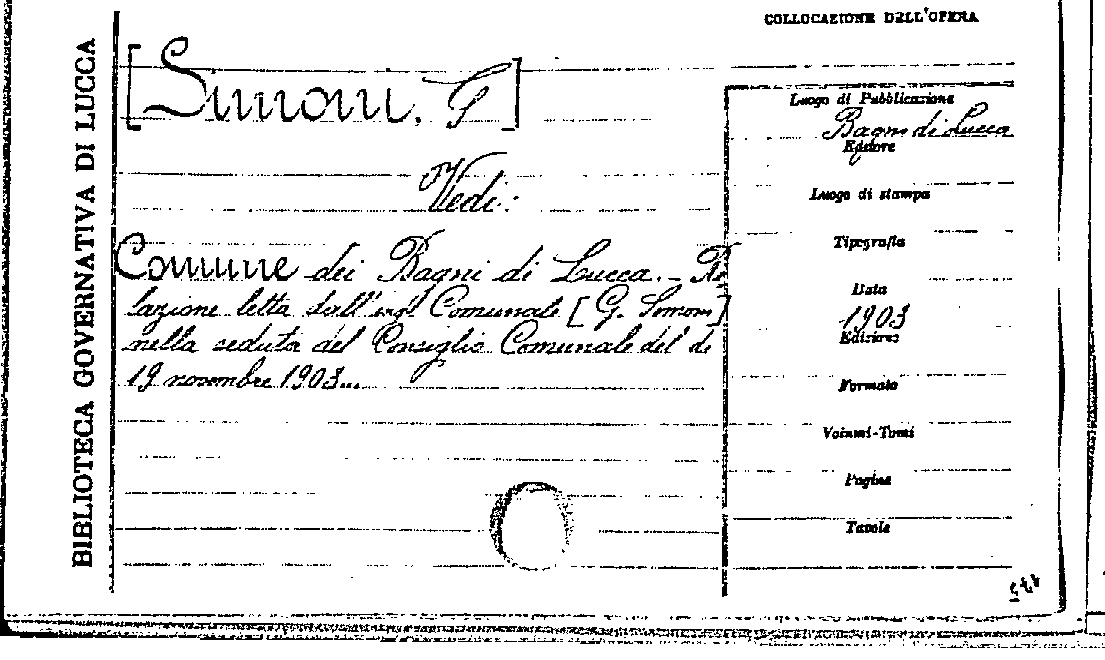 COLLOCAZIONE DELL'OPERA
BIBLIOTECA GOVERNATIVA DI LUCCA
[Simoni, G]
Vedi:
Comune dei Bagni di Lucca. - Re
lazione letta dall'ing. Comunale [G. Simoni]
nella seduta del Consiglio Comunale del dì
19 novembre 1903...
Luogo di Pubblicazione
Bagni di Lucca
Editore
Luogo di stampa
Tipografia
Data
1903
Edizione
Formato
Volumi-Tomi
Pagine
Tavole